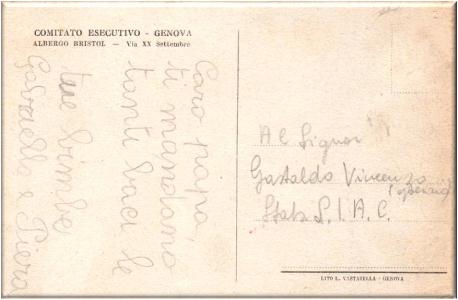 COMITATO ESECUTIVO - GENOVA
ALBERGO BRISTOL — Via XX Settembre
Caro papà,
ti mandano
tanti baci le
tue bimbe
Gabriella e Piera
Al Signor
Gastaldo Vincenzo
(operaio)
Stab. S.I.A.C.
LITO L. VARTAJELLA - GENOVA